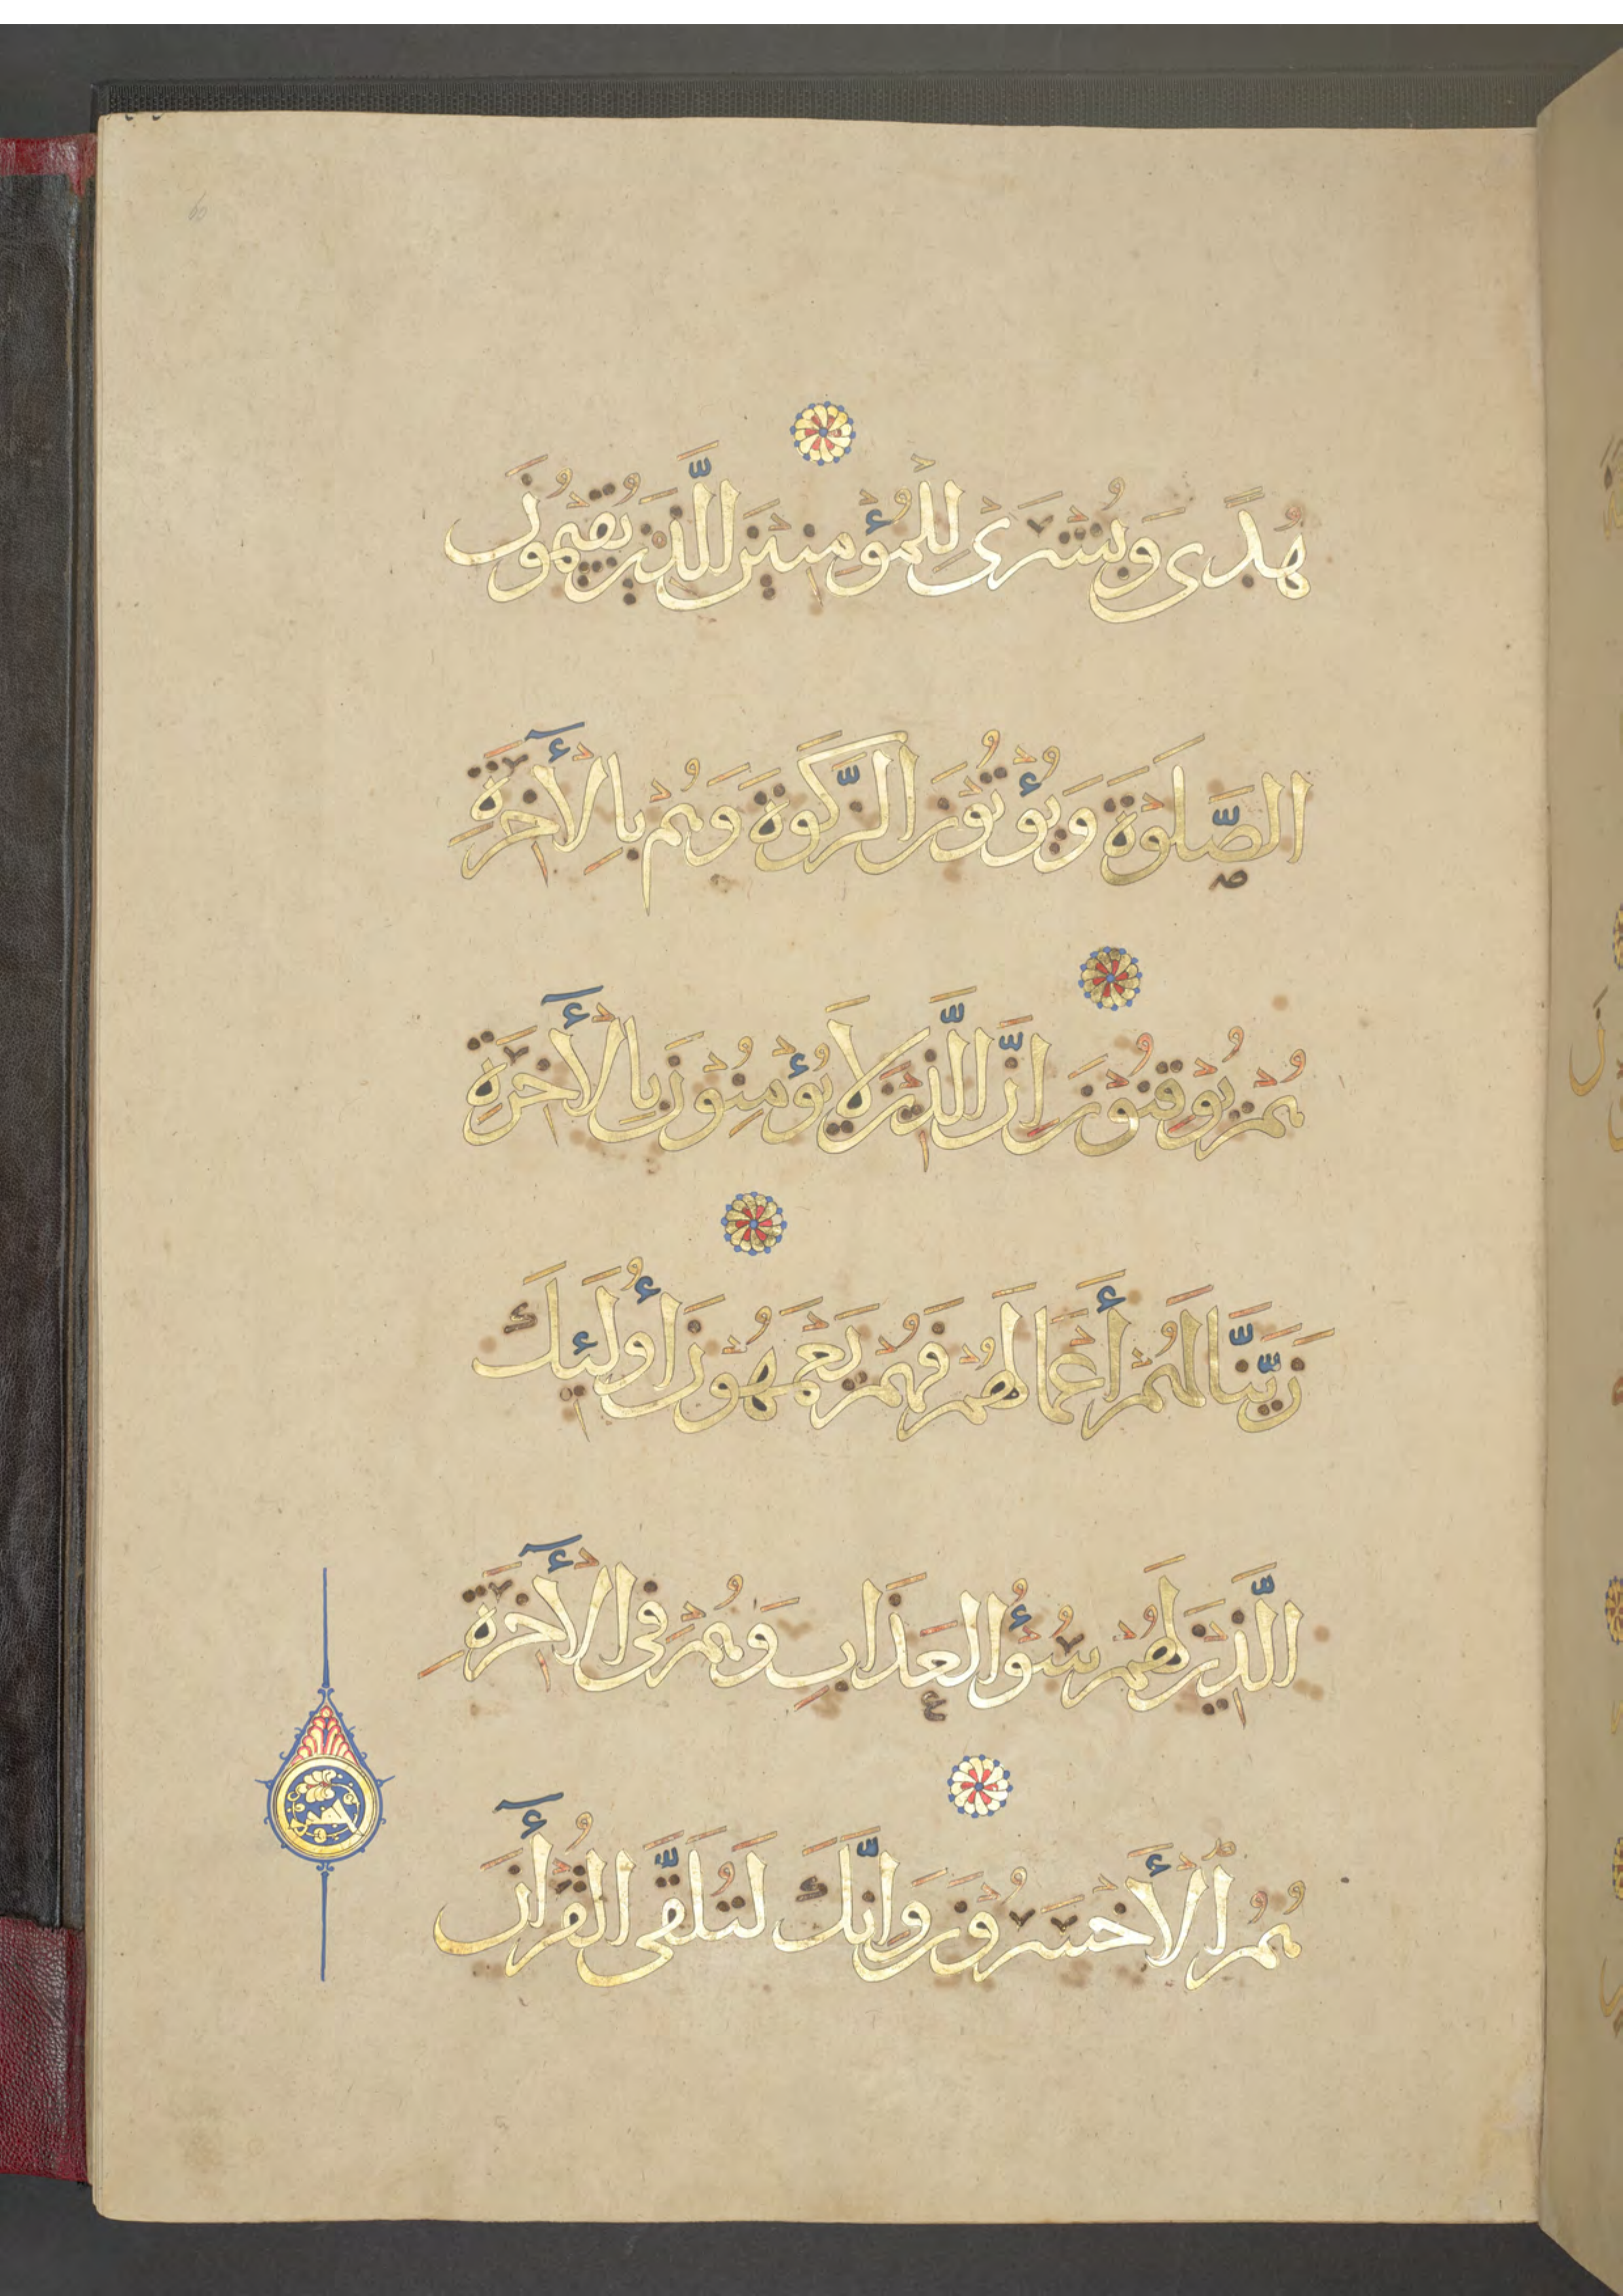 هُدًى وَبُشْرَىٰ لِلْمُؤْمِنِينَ الَّذِينَ يُقِيمُونَ
الصَّلَوٰةَ وَيُؤْتُونَ الزَّكَوٰةَ وَهُمْ بِالْأَخِرَةِ
هُمْ يُوقِنُونَ إِنَّ الَّذِينَ لَا يُؤْمِنُونَ بِالْأَخِرَةِ
زَيَّنَّا لَهُمْ أَعْمَالَهُمْ فَهُمْ يَعْمَهُونَ أُولَئِكَ
الَّذِينَ لَهُمْ سُوءُ الْعَذَابِ وَهُمْ فِي الْأَخِرَةِ
هُمُ الْأَخْسَرُونَ وَإِنَّكَ لَتُلَقَّى الْقُرْأَنَ